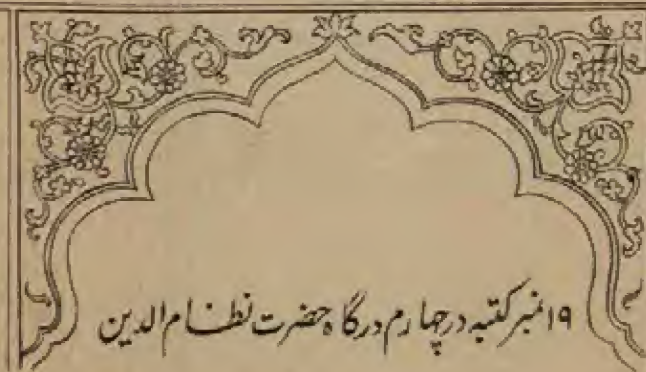 ۱۹ نمبر کتبہ در چہارم درگاہ حضرت نظام الدین